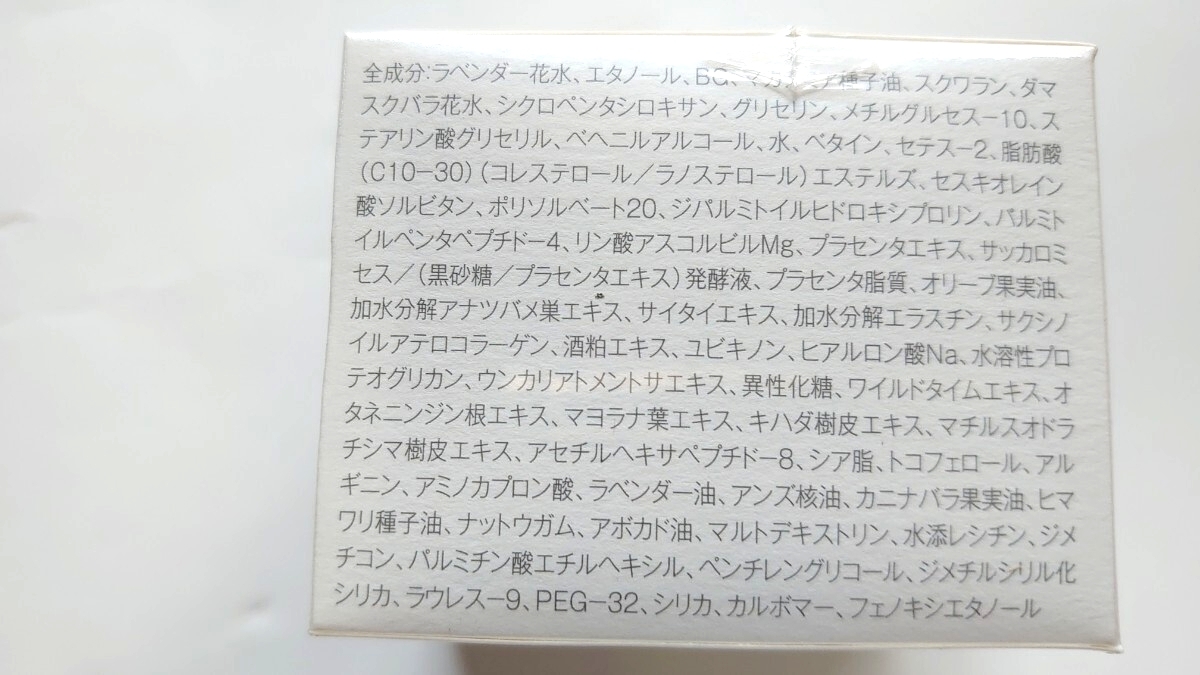 全成分:ラベンダー花水、エタノール、BG、マカ ア種子油、スクワラン、ダマ
スクバラ花水、シクロペンタシロキサン、グリセリン、メチルグルセスー10、ス
テアリン酸グリセリル、ベヘニルアルコール、水、ベタイン、セテスー2、脂肪酸
(C10-30)(コレステロール/ラノステロール)エステルズ、セスキオレイン
酸ソルビタン、ポリソルベート20、ジパルミトイルヒドロキシプロリン、パルミト
イルペンタペプチドー4、リン酸アスコルビルMg、プラセンタエキス、サッカロミ
セス/(黒砂糖/プラセンタエキス)発酵液、プラセンタ脂質、オリーブ果実油、
加水分解アナツバメ巣エキス、サイタイエキス、加水分解エラスチン、サクシノ
イルアテロコラーゲン、酒粕エキス、ユビキノン、ヒアルロン酸Na、水溶性プロ
テオグリカン、ウンカリアトメントサエキス、異性化糖、ワイルドタイムエキス、オ
タネニンジン根エキス、マヨラナ葉エキス、キハダ樹皮エキス、マチルスオドラ
チシマ樹皮エキス、アセチルヘキサペプチドー8、シア脂、トコフェロール、アル
ギニン、アミノカプロン酸、ラベンダー油、アンズ核油、カニナバラ果実油、ヒマ
ワリ種子油、ナットウガム、アボカド油、マルトデキストリン、水添レシチン、ジメ
チコン、パルミチン酸エチルヘキシル、ペンチレングリコール、ジメチルシリル化
シリカ、ラウレスー9、PEG-32、シリカ、カルボマー、フェノキシエタノール